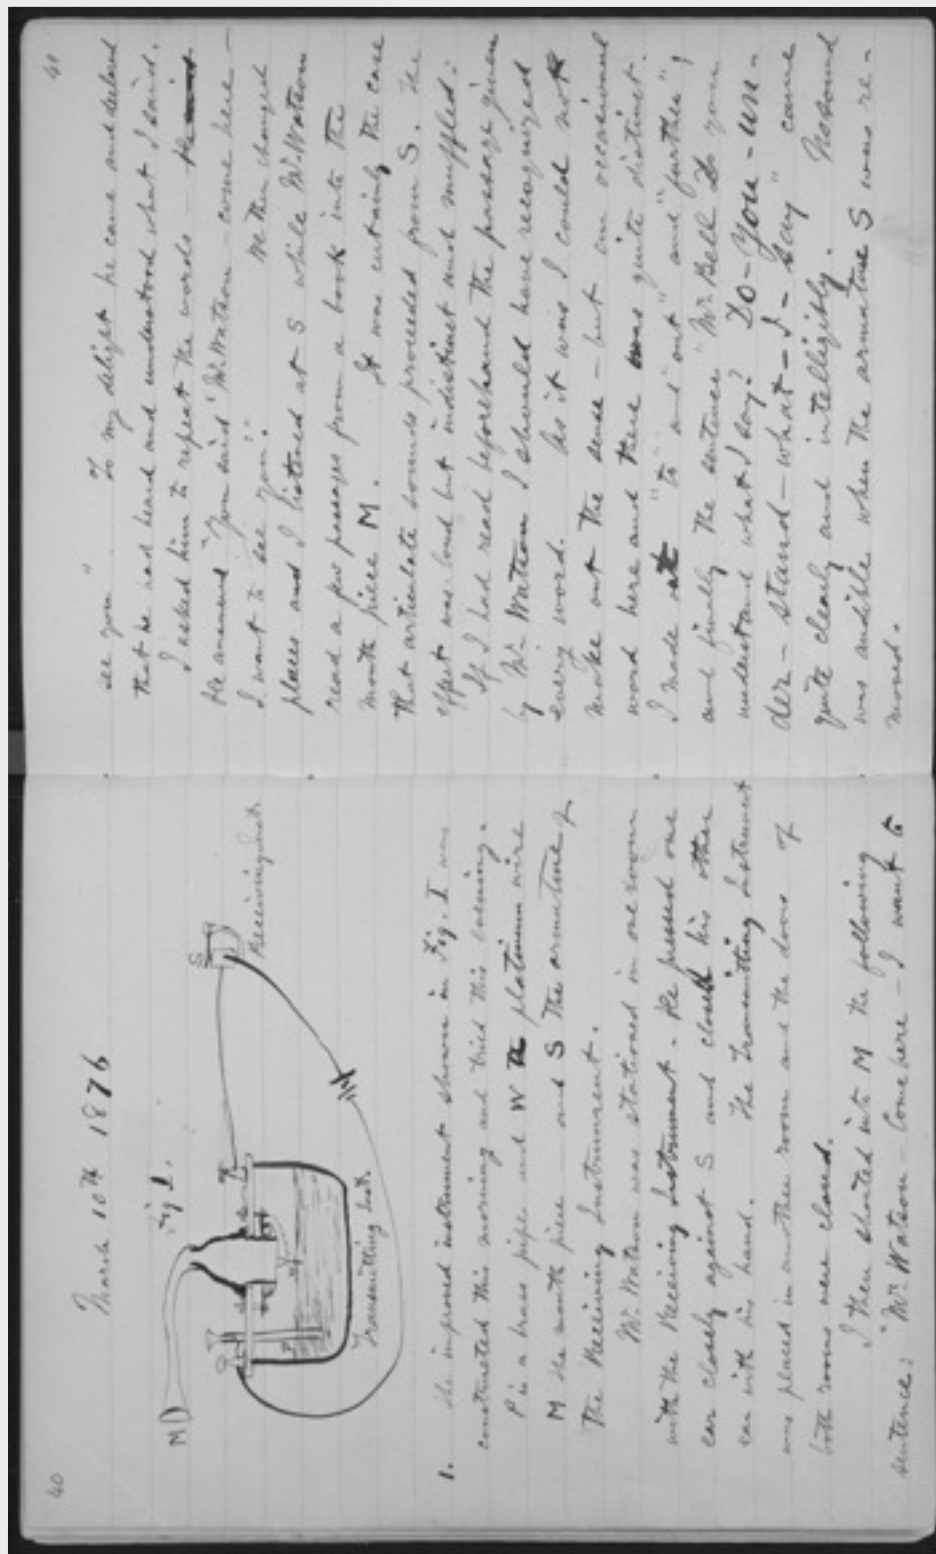 40
March 10th 1876
Fig 1.
M
S
Receiving Inst.
Transmitting Inst.
1. The improved instrument shown in Fig. I was
constructed this morning and tried this evening.
P is a brass pipe and W the platinum wire
M the mouth piece — and S the armature of
The Receiving Instrument.
Mr. Watson was stationed in one room
with the Receiving Instrument. He pressed one
ear closely against S and closed his other
ear with his hand. The Transmitting Instrument
was placed in another room and the doors of
both rooms were closed.
I then shouted into M the following
sentence: "Mr. Watson – Come here – I want to
41
see you". To my delight he came and declared
that he had heard and understood what I said.
I asked him to repeat the words –
He answered "You said 'Mr. Watson – come here –
I want to see you'." We then changed
places and I listened at S while Mr. Watson
read a few passages from a book into the
mouth piece M. It was certainly the case
That articulate sounds proceeded from S. The
effect was loud but indistinct and muffled.
If I had read beforehand the passage given
by Mr. Watson I should have recognized
every word. As it was I could not
make out the sense – but an occasional
word here and there was quite distinct.
I made out "to" and "out" and "further";
and finally the sentence "Mr. Bell Do you
understand what I say? DO – YOU – UN –
der – stand – what – I – say" came
quite clearly and intelligibly. No sound
was audible when the armature S was re-
moved.